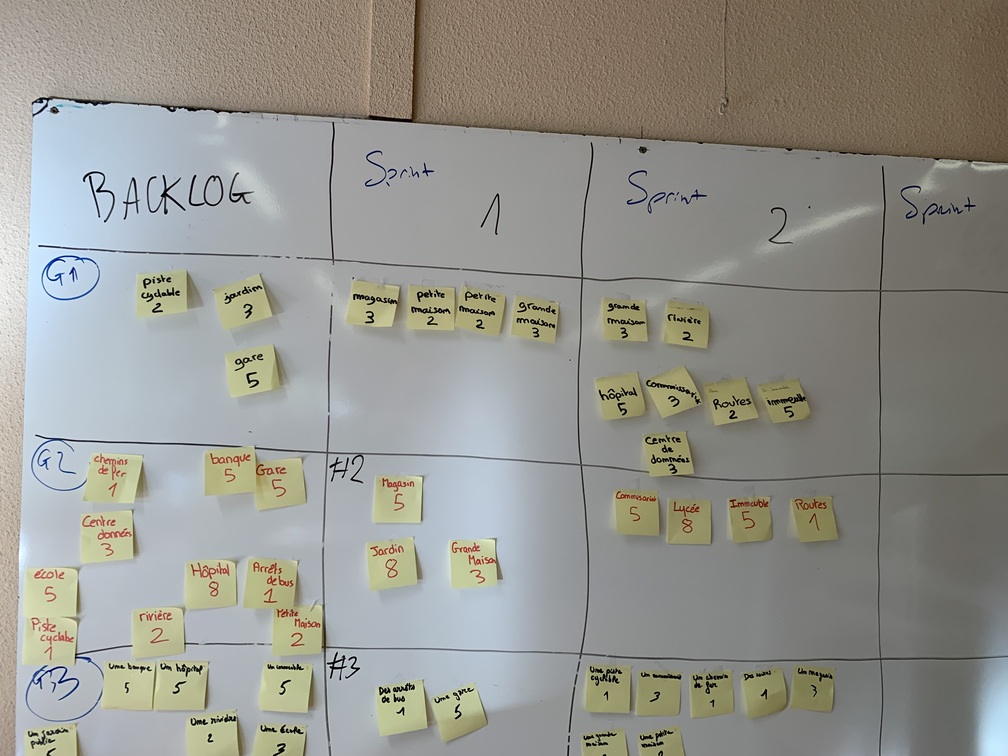 BACKLOG
Sprint
1
Sprint
2
Sprint
G1
piste
cyclable
2
jardin
3
gare
5
magasin
3
petite
maison
2
petite
maison
2
grande
maison
3
grande
maison
3
rivière
2
hôpital
5
Commissariat
3
Routes
2
immeuble
5
Centre
de
données
3
G2
chemins
de fer
1
banque
5
Gare
5
Centre
données
3
école
5
Hôpital
8
Arrêts
de bus
1
Piste
cyclabe
1
rivière
2
Petite
Maison
2
#2
Magasin
5
Jardin
8
Grande
Maison
3
Commisariat
5
Lycée
8
Immeuble
5
Routes
1
G3
Une banque
5
Un hôpital
5
Un immeuble
5
Un jardin
public
5
Une rivière
2
Une école
3
#3
Des arrêts
de bus
1
Une gare
5
Une piste
cyclable
1
3
Un chemin
de fer
1
1
Un magasin
3
Une grande
maison
Une petite
maison